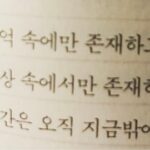 억 속에만 존재하고
상 속에서만 존재하
간은 오직 지금밖에